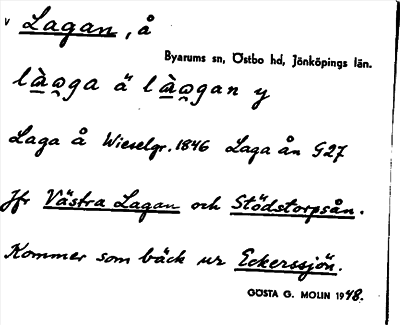 v Lagan, å
Byarums sn, Östbo hd, Jönköpings län.
làga̯ga ä làga̯gan y
Laga å Wieselgr. 1846 Laga ån G27
Jfr Västra Lagan och Stödstorpsån.
Kommer som bäck ur Eckerssjön.
GÖSTA G. MOLIN 1948.